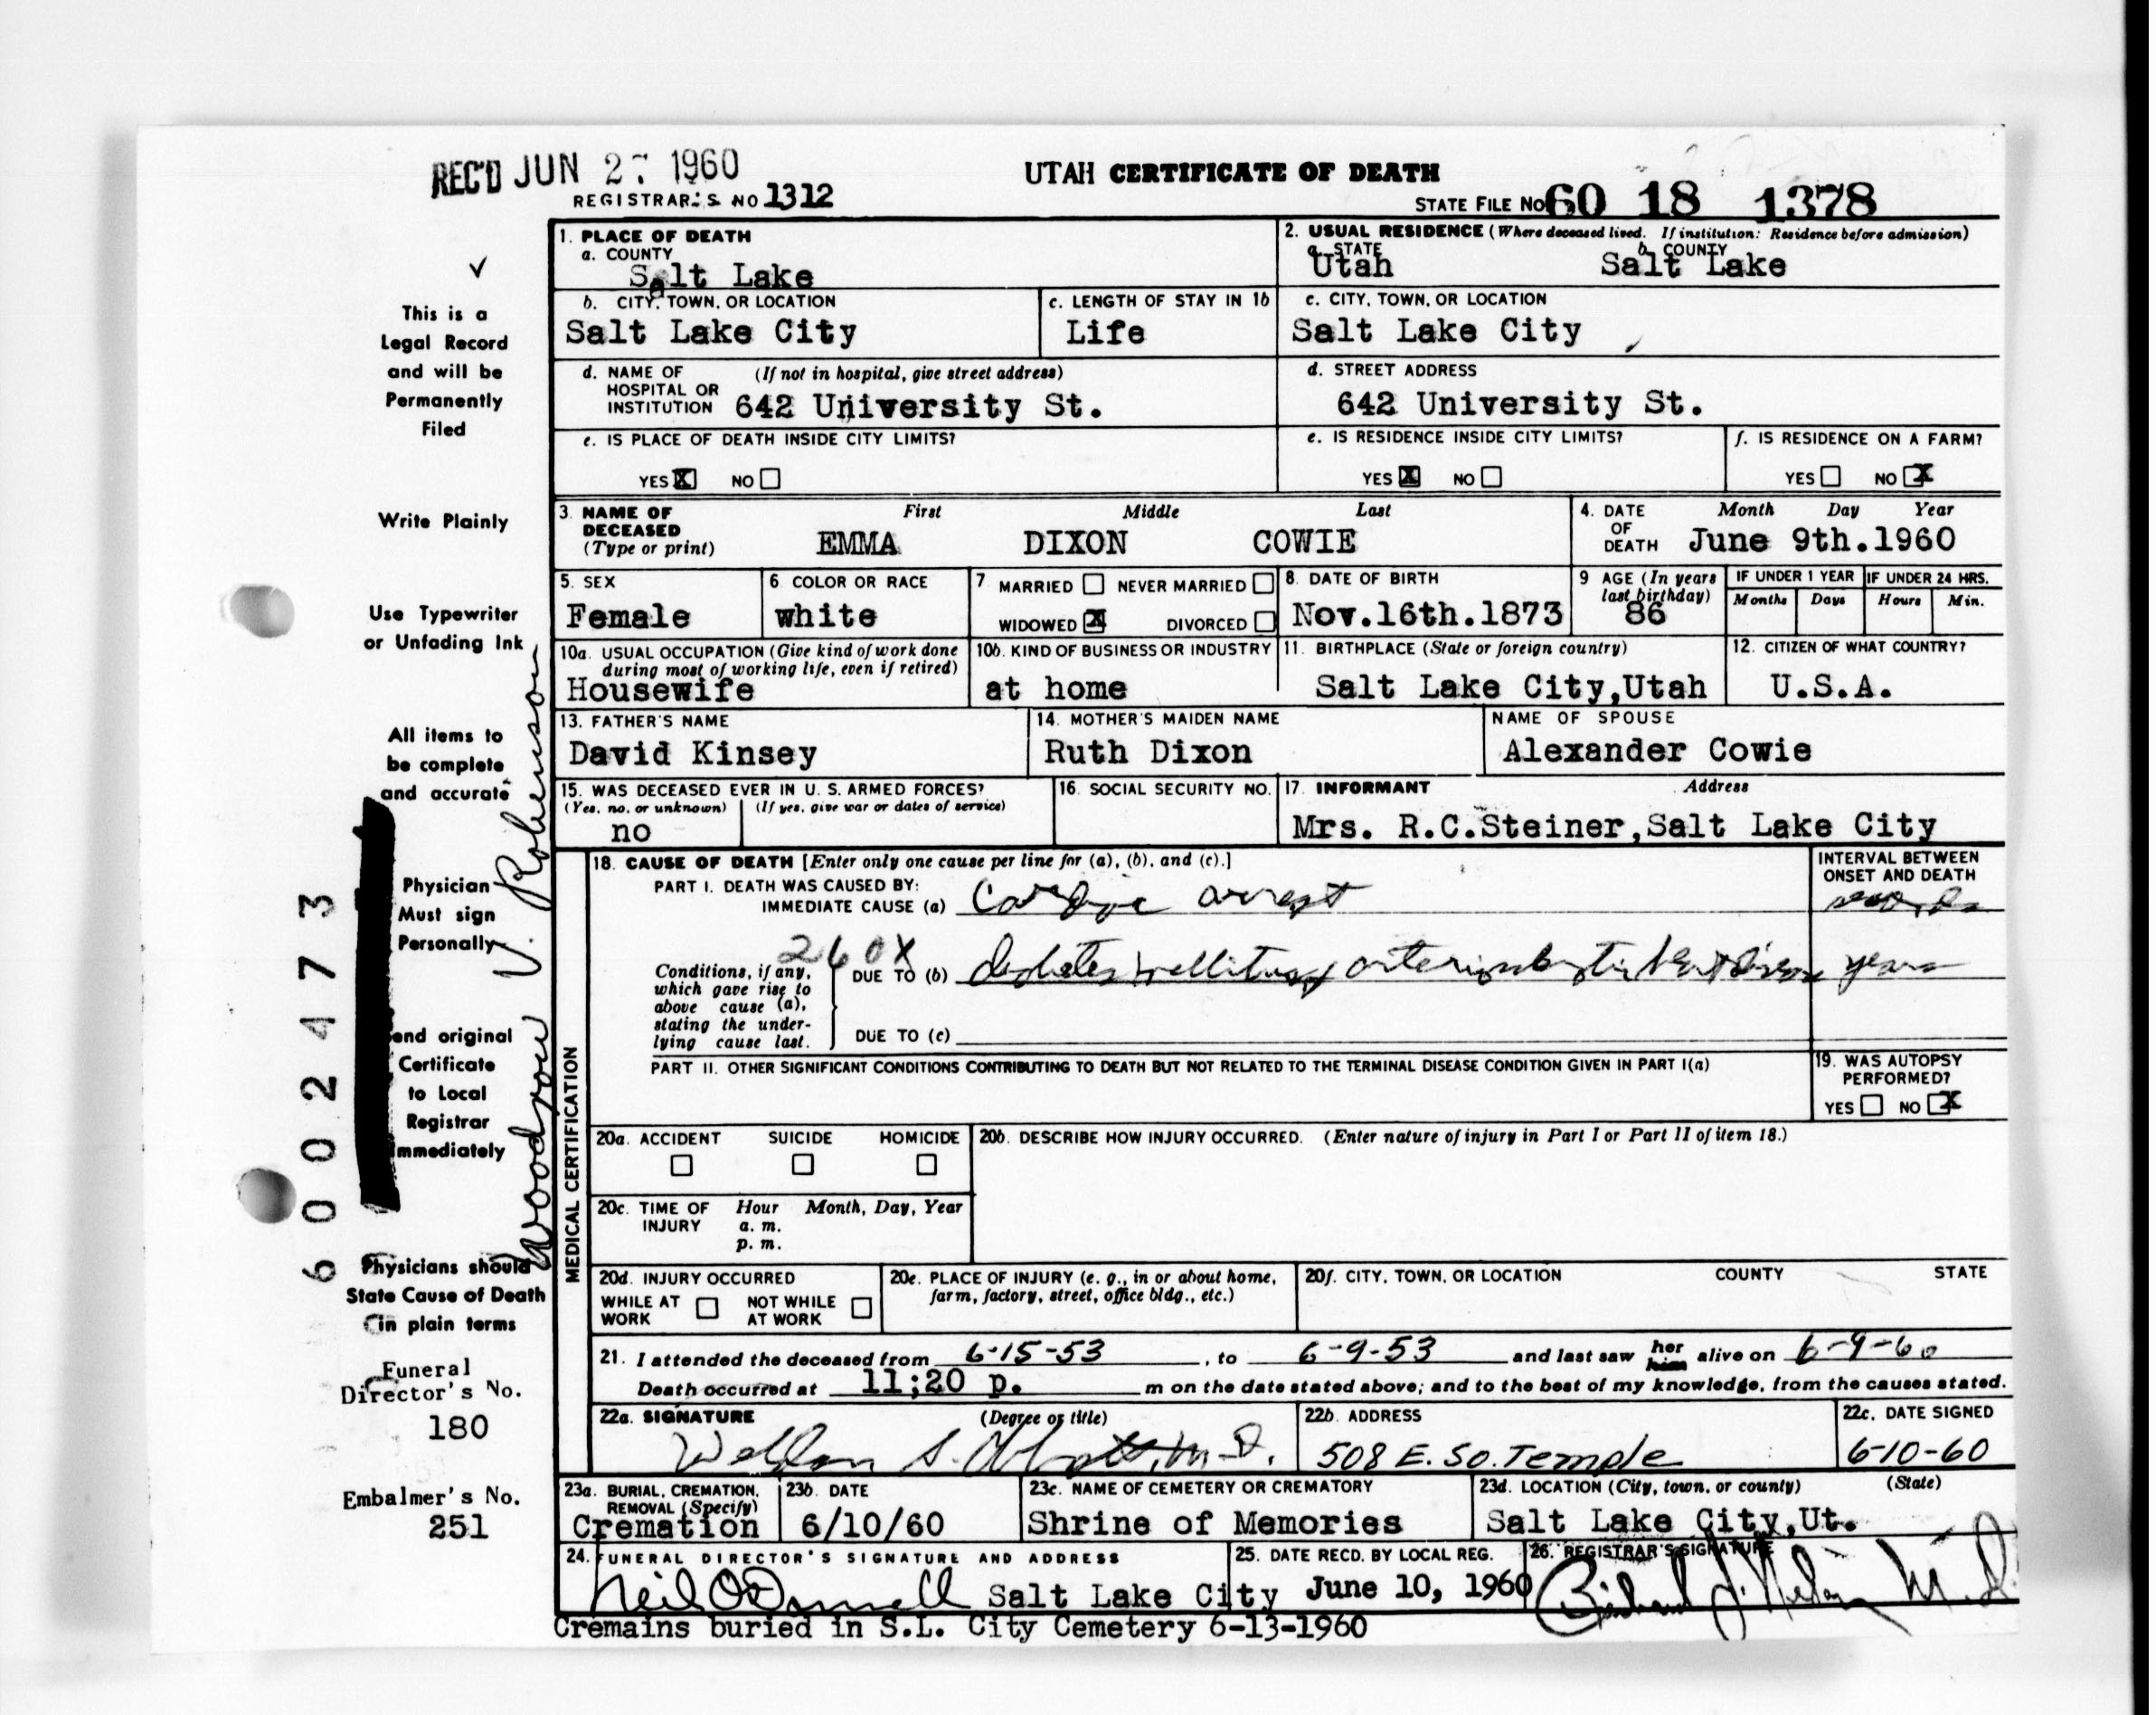 REC'D JUN 27 1960
REGISTRAR'S NO 1312
UTAH CERTIFICATE OF DEATH
STATE FILE NO 60 18 1378
1. PLACE OF DEATH
a. COUNTY
Salt Lake
2. USUAL RESIDENCE (Where deceased lived. If institution: Residence before admission)
a. STATE b. COUNTY
Utah Salt Lake
b. CITY, TOWN, OR LOCATION
Salt Lake City
c. LENGTH OF STAY IN 1b
Life
c. CITY, TOWN, OR LOCATION
Salt Lake City
d. NAME OF HOSPITAL OR INSTITUTION (If not in hospital, give street address)
642 University St.
d. STREET ADDRESS
642 University St.
e. IS PLACE OF DEATH INSIDE CITY LIMITS?
YES X NO
e. IS RESIDENCE INSIDE CITY LIMITS?
YES X NO
f. IS RESIDENCE ON A FARM?
YES NO X
3. NAME OF DECEASED (Type or print)
First Middle Last
EMMA DIXON COWIE
4. DATE OF DEATH Month Day Year
June 9th.1960
5. SEX
Female
6. COLOR OR RACE
white
7 MARRIED NEVER MARRIED
WIDOWED X DIVORCED
8. DATE OF BIRTH
Nov.16th.1873
9 AGE (In years last birthday)
86
IF UNDER 1 YEAR IF UNDER 24 HRS.
Months Days Hours Min.
10a. USUAL OCCUPATION (Give kind of work done during most of working life, even if retired)
Housewife
10b. KIND OF BUSINESS OR INDUSTRY
at home
11. BIRTHPLACE (State or foreign country)
Salt Lake City,Utah
12. CITIZEN OF WHAT COUNTRY?
U.S.A.
13. FATHER'S NAME
David Kinsey
14. MOTHER'S MAIDEN NAME
Ruth Dixon
NAME OF SPOUSE
Alexander Cowie
15. WAS DECEASED EVER IN U. S. ARMED FORCES?
(Yes, no, or unknown) (If yes, give war or dates of service)
no
16. SOCIAL SECURITY NO.
17. INFORMANT Address
Mrs. R.C.Steiner,Salt Lake City
MEDICAL CERTIFICATION
18. CAUSE OF DEATH [Enter only one cause per line for (a), (b), and (c).]
INTERVAL BETWEEN ONSET AND DEATH
PART I. DEATH WAS CAUSED BY:
IMMEDIATE CAUSE (a) Cardiac arrest
260X
Conditions, if any, which gave rise to above cause (a), stating the underlying cause last.
DUE TO (b) diabetes mellitus, heart disease years
DUE TO (c)
PART II. OTHER SIGNIFICANT CONDITIONS CONTRIBUTING TO DEATH BUT NOT RELATED TO THE TERMINAL DISEASE CONDITION GIVEN IN PART I(a)
19. WAS AUTOPSY PERFORMED?
YES NO X
20a. ACCIDENT SUICIDE HOMICIDE
20b. DESCRIBE HOW INJURY OCCURRED. (Enter nature of injury in Part I or Part II of item 18.)
20c. TIME OF INJURY Hour Month, Day, Year
a. m.
p. m.
20d. INJURY OCCURRED
WHILE AT WORK NOT WHILE AT WORK
20e. PLACE OF INJURY (e. g., in or about home, farm, factory, street, office bldg., etc.)
20f. CITY, TOWN, OR LOCATION COUNTY STATE
21. I attended the deceased from 6-15-53, to 6-9-53 and last saw her him alive on 6-9-60
Death occurred at 11;20 p. m on the date stated above; and to the best of my knowledge, from the causes stated.
22a. SIGNATURE (Degree or title)
M.D.
22b. ADDRESS
508 E. So. Temple
22c. DATE SIGNED
6-10-60
23a. BURIAL, CREMATION, REMOVAL (Specify)
Cremation
23b. DATE
6/10/60
23c. NAME OF CEMETERY OR CREMATORY
Shrine of Memories
23d. LOCATION (City, town, or county) (State)
Salt Lake City,Ut.
24. FUNERAL DIRECTOR'S SIGNATURE AND ADDRESS
Neil O'Donnell Salt Lake City
25. DATE RECD. BY LOCAL REG.
June 10, 1960
26. REGISTRAR'S SIGNATURE
M.D.
Cremains buried in S.L. City Cemetery 6-13-1960
This is a
Legal Record
and will be
Permanently
Filed
Write Plainly
Use Typewriter
or Unfading Ink
All items to
be complete
and accurate
Physician
Must sign
Personally
end original
Certificate
to Local
Registrar
mmediately
Physicians should
State Cause of Death
in plain terms
Funeral
Director's No.
180
Embalmer's No.
251
6002473
Woodrow V. Robenson